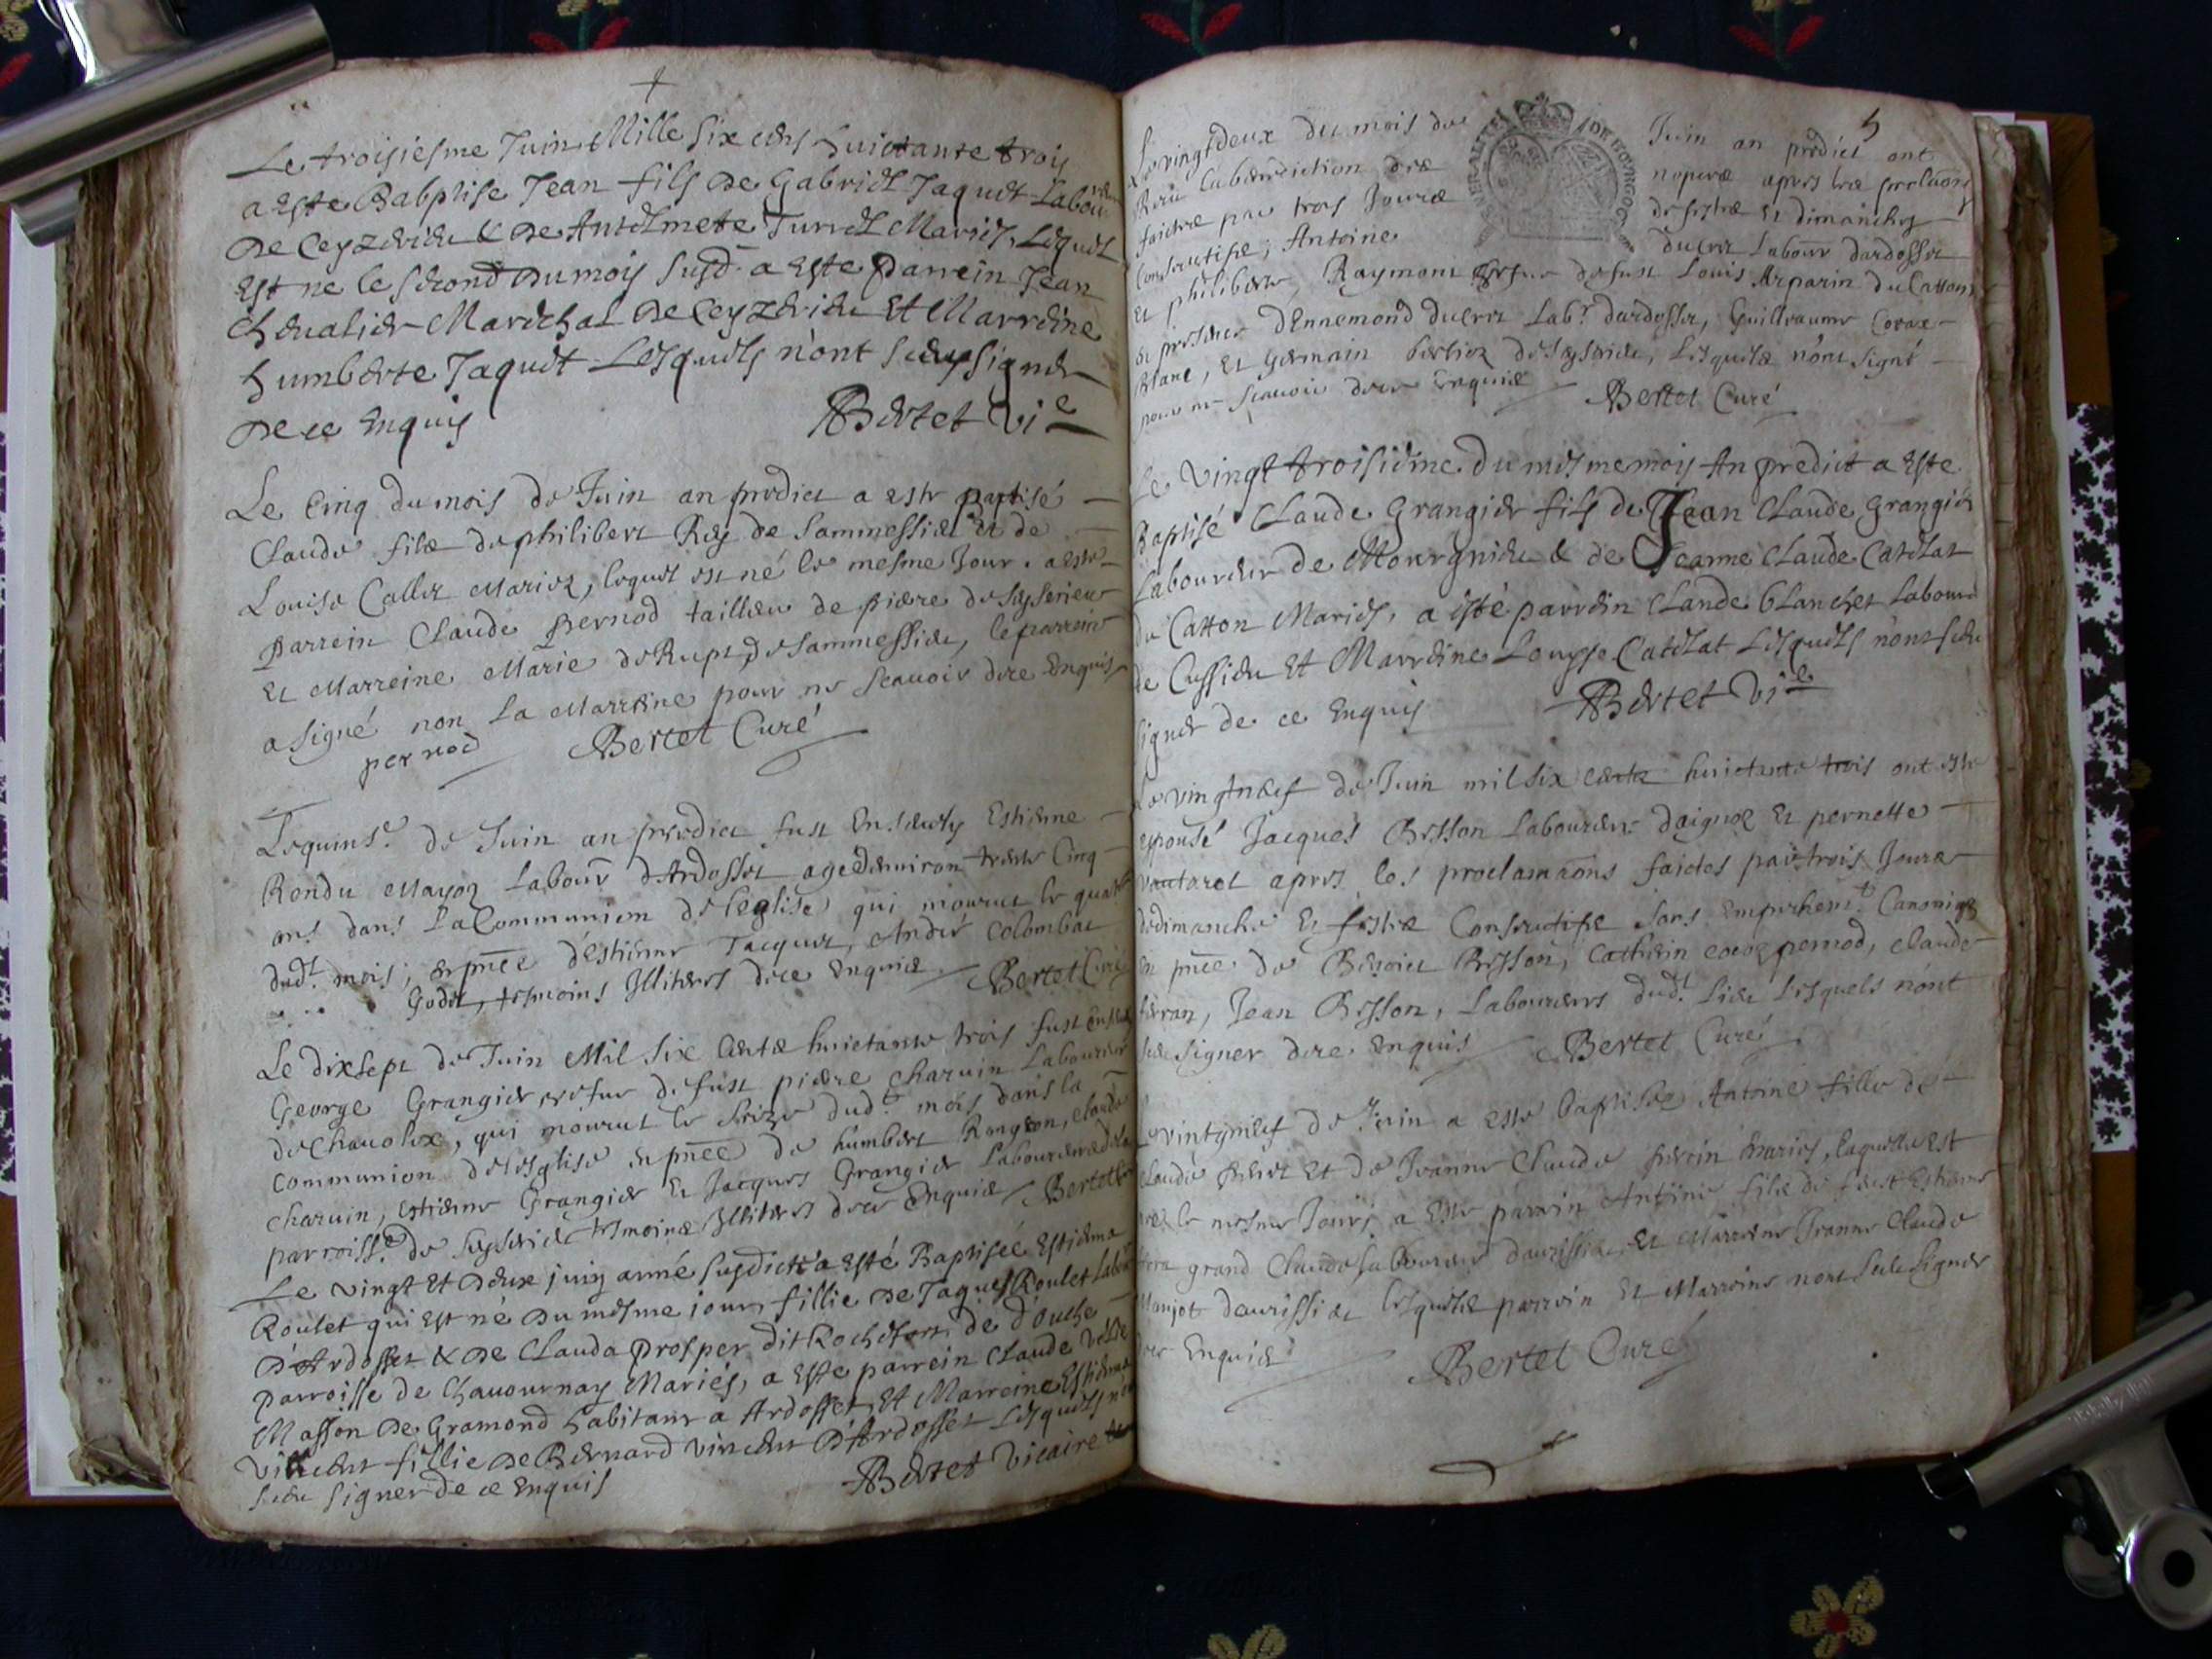 Le troisiesme Juin Mille six cens huictante trois
a este Babptise Jean fils de Gabriel Jaquet Labou
de Ceyzerieu & de Antelmete Turrel Mariés, Lequel
Est ne le second du mois susd. a Este Parrein Jean
Chevalier Mareschal de Ceyzerieu Et Marreine
humberte Jaquet Lesquels n'ont sceu signer
de ce Enquis Bertet Vi.e
Le Cinq du mois de Juin an predict a este baptisé
Claude filz de philibert Rey de Sammessieu et de
Louise Mariez, lequel est né le mesme Jour. a este
parrein Claude pernod tailleur de piere de Seyserieu
Et Marreine Marie de Rupt de Sammessieu, le parrein
a signé non La Marreine pour ne scavoir de ce Enquis
pernod Bertet Curé
Le quins.e de Juin an predict fust Ensevely Estienne
Rendu Mayoz Labour d'Ardosset agé denviron trente Cinq
ans dans La Communion de l'eglise qui mourut le
dud.t mois, en pñce d'estienne Jacquet, André Colombat
Godet, tesmoins Illiteres de ce enquis Bertet Curé
Le dix sept de Juin Mil six Centz huictante trois fust
George Grangier vefve de fust piere Charvin Laboureur
de Chavolex, qui mourut le seize dud.t mois dans la
Communion de lesglise en pñce de humbert Rongeon, Claude
Charvin, estienne Grangier Et Jacques Grangier Laboureurs
parroiss.e de Seyserieu tesmoins Illiteres de ce Enquis Bertet
Le vingt Et deux juin année susdicte a esté Baptiseé Estiena
Roulet qui Est né du mesme jour, fillie de Jaques Roulet Labou
d'Ardosset & de Clauda prosper dit Rochefort de d'ouche
parroisse de Chavournay Mariés, a Este parrein Claude
Masson de Gramond habitant a Ardosset, Et Marreine Estiena
Vincent fillie de Bernard Vincent d'Ardosset Lesquels n'
sceu signer de ce Enquis Bertet Vicaire
5
Le vingt deux du mois de Juin an predict ont
Receu la benediction
faictes par trois Jours de festes Et dimanches
Consecutifs; Antoine Labour dardosset
Et philiberte Raymont vefve de fust Louis Arparin du Catton
en presence d'Ennemond Lab.r dardosset, Guillaume
Blanc, Et Germain de Seyserieu, lesquels n'ont signé
pour ne scavoir de ce enquis Bertet Curé
Le Vingt troisieme du mesme mois An predict a este
Baptisé Claude Grangier fils de Jean Claude Grangier
Laboureur de Mourgnieu & de Jeanne Claude Catelat
du Catton Mariés, a esté parrein Claude Blanchet Laboure
de Cussieu Et Marreine Louyse Catelat Lesquels n'ont sceu
signer de ce Enquis Bertet Vi.e
Le vingt neuf de Juin mil six centz huictante trois ont este
espousé Jacques Besson Laboureur daignoz Et pernette
Vautaret apres les proclamaõns faictes par trois Jours
de dimanche Et festes Consecutifs sans Empeschem.t Canonique
en pñce de Benoict Besson, Catherin pernod, Claude
Jean Besson, Laboureurs dud.t Lieu Lesquels n'ont
sceu signer de ce enquis Bertet Curé
Le vintgneuf de Juin a este baptisée Antoine fillie de
Claude Et de Jeanne Claude Mariés, laquelle est
née le mesme Jour; a este parrein Antoine filz de feust Estienne
grand Claude Laboureur Et Marreine Jeanne Claude
lesquels parrein Et Marreine n'ont sceu signer
de ce Enquis Bertet Curé